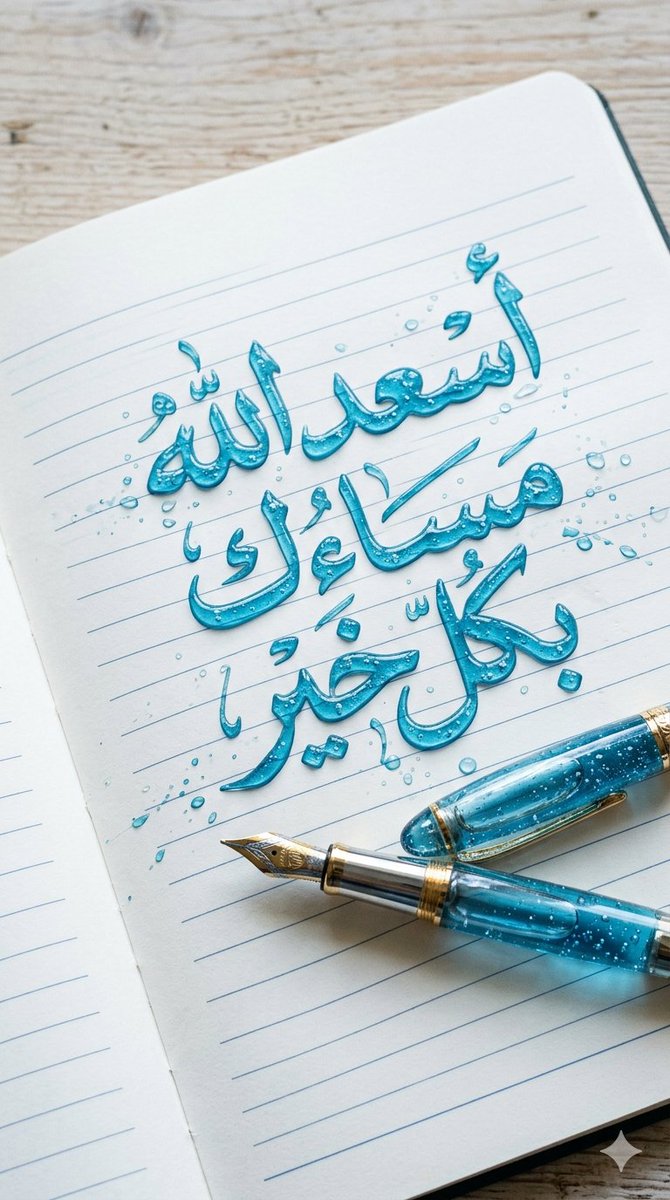 أسعد الله
مساءك
بكل خير